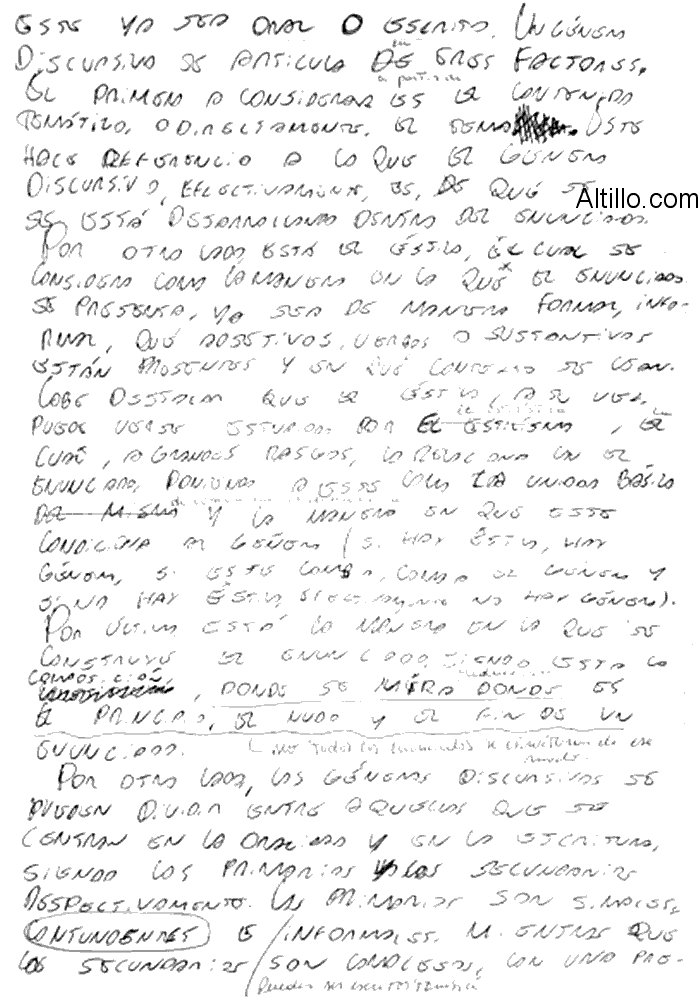 ESTE YA SEA ORAL O ESCRITO. UN GÉNERO
DISCURSIVO SE ARTICULA DE TRES FACTORES.
en
a partir de
EL PRIMERO A CONSIDERAR ES EL CONTENIDO
TEMÁTICO, O DIRECTAMENTE, EL TEMA. ESTE
HACE REFERENCIA A LO QUE EL GÉNERO
DISCURSIVO, EFECTIVAMENTE, ES, DE QUÉ SE
Altillo.com
SE ESTÁ DESARROLLANDO DENTRO DEL ENUNCIADO.
POR OTRO LADO ESTÁ EL ESTILO, EL CUAL SE
CONSIDERA COMO LA MANERA EN LA QUE EL ENUNCIADO
SE PRESENTA, YA SEA DE MANERA FORMAL, INFO-
RMAL, QUÉ ADJETIVOS, VERBOS O SUSTANTIVOS
ESTÁN PRESENTES Y EN QUÉ CONTEXTO SE USAN.
CABE DESTACAR QUE EL ESTILO, A SU VEZ,
PUEDE VERSE ESTUDIADO POR EL , EL
CUAL, A GRANDES RASGOS, LO RELACIONA CON EL
ENUNCIADO, PONIENDO A ESTE COMO LA UNIDAD BÁSICA
DEL MISMO Y LA MANERA EN QUE ESTE
CONDICIONA AL GÉNERO (SI HAY ESTILO, HAY
GÉNERO, SI ESTE CAMBIA, CAMBIA EL GÉNERO Y
SI NO HAY ESTILO, EFECTIVAMENTE NO HAY GÉNERO).
POR ÚLTIMO ESTÁ LA MANERA EN LA QUE SE
CONSTRUYE EL ENUNCIADO, SIENDO ESTA LA
COMPOSICIÓN
, DONDE SE MIRA DONDE ES
EL PRINCIPIO, EL NUDO Y EL FIN DE UN
ENUNCIADO.
no todos los enunciados se construyen de ese
modo.
POR OTRO LADO, LOS GÉNEROS DISCURSIVOS SE
PUEDEN DIVIDIR ENTRE AQUELLOS QUE SE
CENTRAN EN LA ORALIDAD Y EN LA ESCRITURA,
SIENDO LOS PRIMARIOS Y LOS SECUNDARIOS
RESPECTIVAMENTE. LOS PRIMARIOS SON SIMPLES,
CONTUNDENTES E INFORMALES. MIENTRAS QUE
LOS SECUNDARIOS SON COMPLEJOS, CON UNA PRE-
Pueden ser escritos también